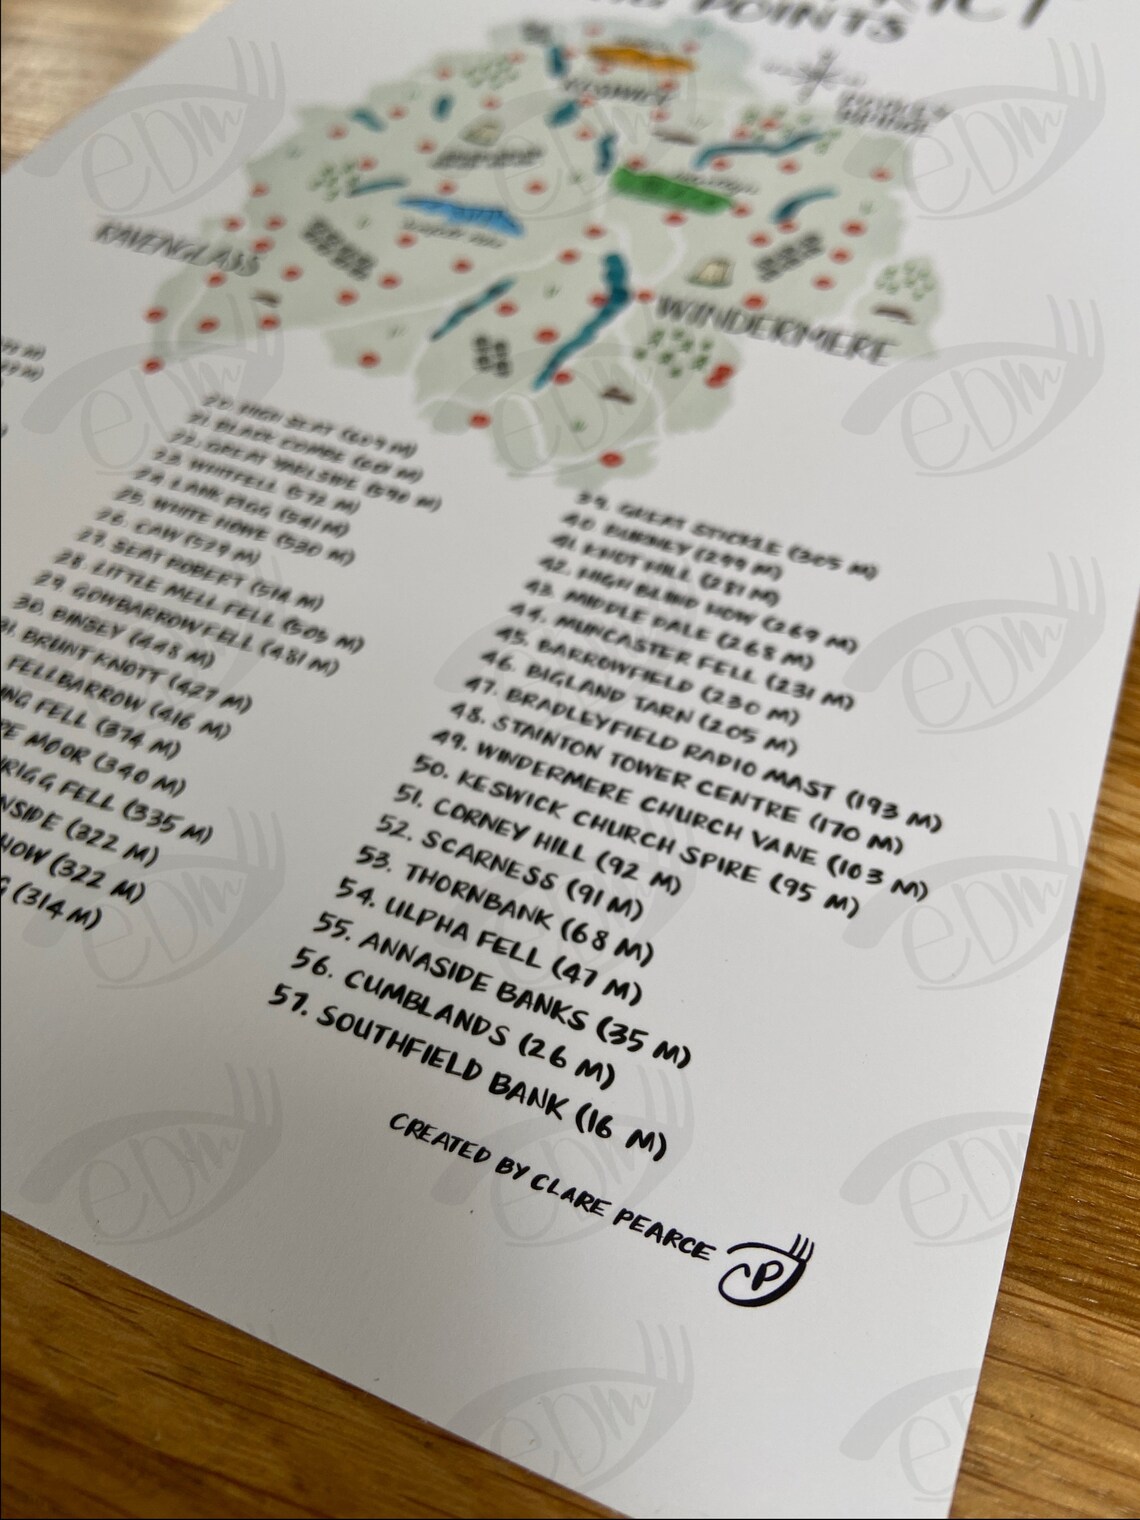 POINTS
RAVENGLASS
WINDERMERE
20. HIGH SEAT (609 M)
22. GREAT YARLSIDE (590 M)
23. WHITFELL (572 M)
24. LANK RIGG (541 M)
25. WHITE HOWE (530 M)
26. CAW (529 M)
27. SEAT ROBERT (514 M)
28. LITTLE MELL FELL (505 M)
29. GOWBARROW FELL (481 M)
30. BINSEY (448 M)
31. BRUNT KNOTT (427 M)
FELLBARROW (416 M)
FELL (374 M)
MOOR (340 M)
FELL (335 M)
(322 M)
HOW (322 M)
(314 M)
39. GREAT STICKLE (305 M)
40. BURNEY (299 M)
41. KNOT HILL (281 M)
42. HIGH BLIND HOW (269 M)
43. MIDDLE DALE (268 M)
44. MUNCASTER FELL (231 M)
45. BARROWFIELD (230 M)
46. BIGLAND TARN (205 M)
47. BRADLEYFIELD RADIO MAST (193 M)
48. STAINTON TOWER CENTRE (170 M)
49. WINDERMERE CHURCH VANE (103 M)
50. KESWICK CHURCH SPIRE (95 M)
51. CORNEY HILL (92 M)
52. SCARNESS (91 M)
53. THORNBANK (68 M)
54. ULPHA FELL (47 M)
55. ANNASIDE BANKS (35 M)
56. CUMBLANDS (26 M)
57. SOUTHFIELD BANK (16 M)
CREATED BY CLARE PEARCE
CP
EDM